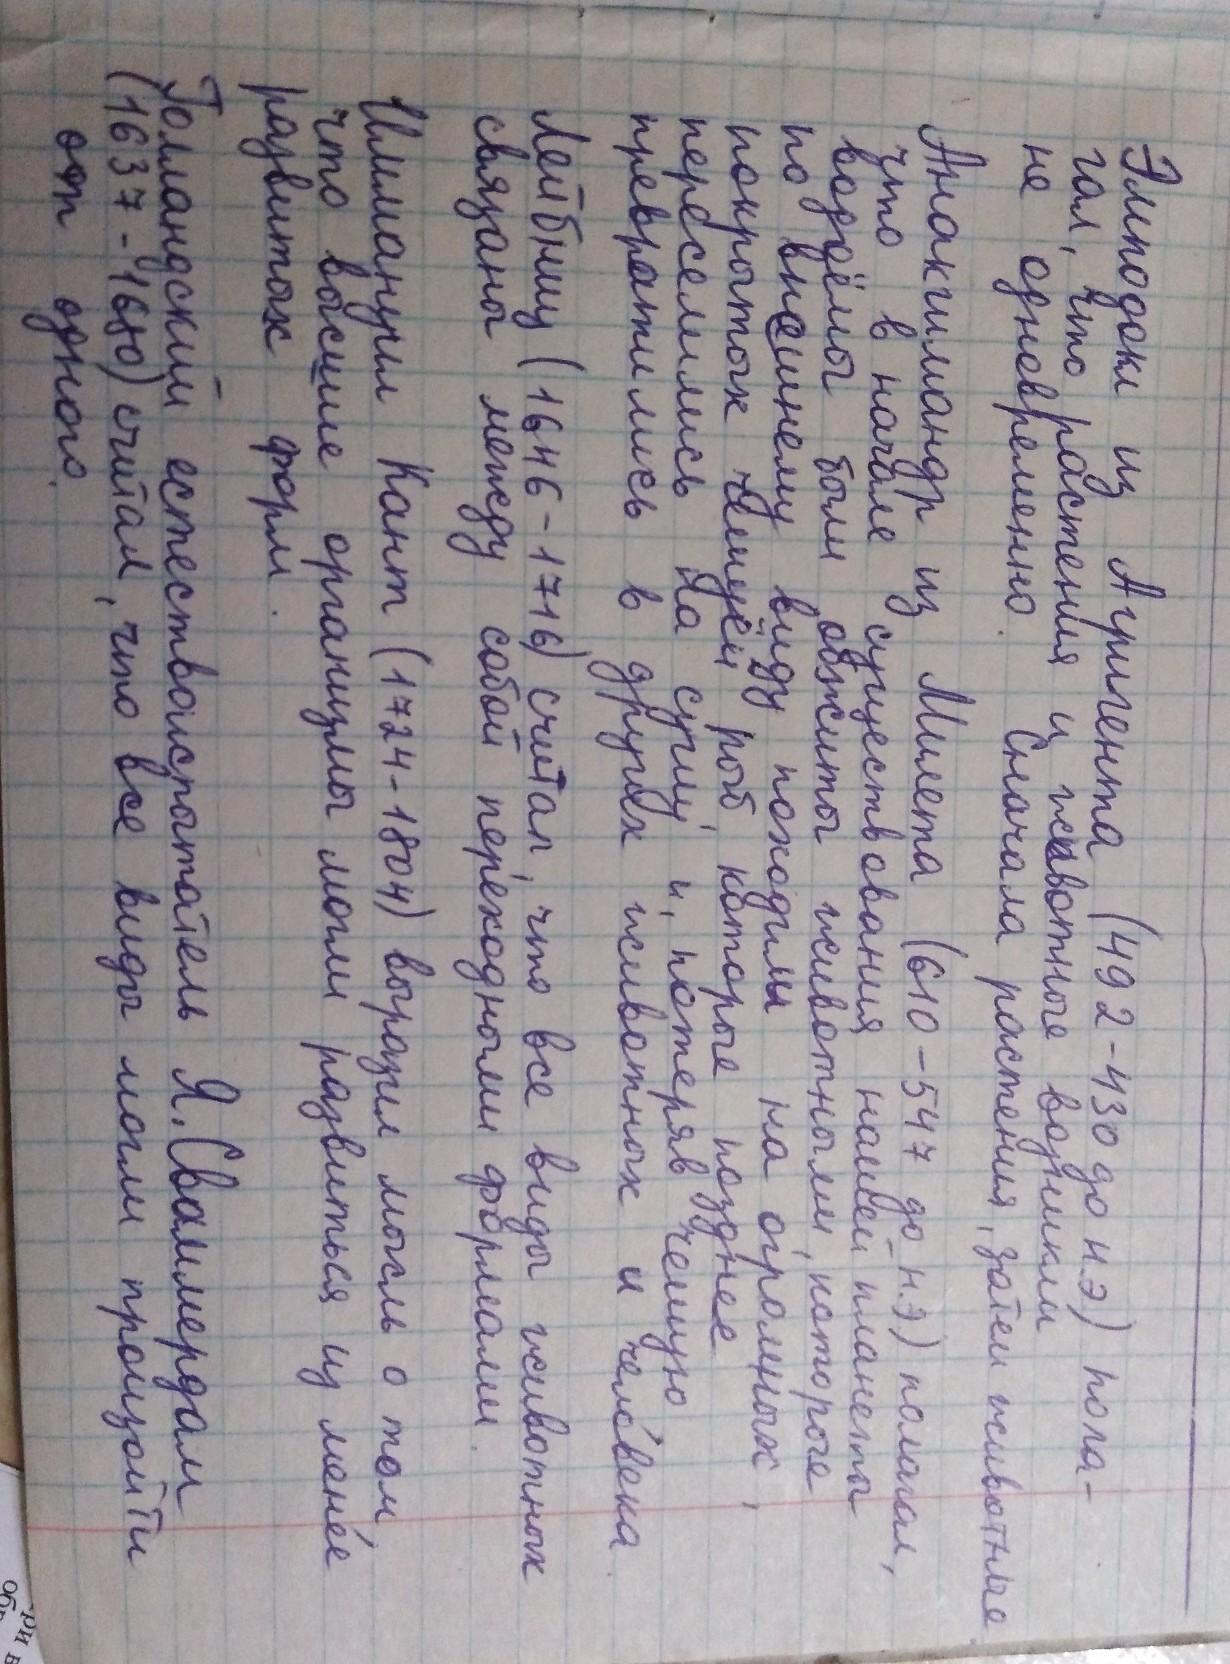 Эмподокл из Агригента (492-430 до н.э) пола-
гал, что растения и животные возникли
не одновременно. Сначала растения, затем животные
Анаксимандр из Милета (610-547 до н.э) полагал,
что в начале существования нашей планеты
водоёмы были обжиты животными, которые
по внешнему виду походили на огромных,
покрытых чешуёй рыб которые позднее
переселились на сушу, и, потеряв чешую
превратились в других животных и человека.
Лейбниц (1646-1716) считал, что все виды животных
связаны между собой переходными формами.
Иммануил Кант (1724-1804) выразил мысль о том
что высшие организмы могли развиться из менее
развитых форм.
Голландский естествоиспытатель Я.Сваммердам
(1637-1680) считал, что все виды могли произойти
от одного.